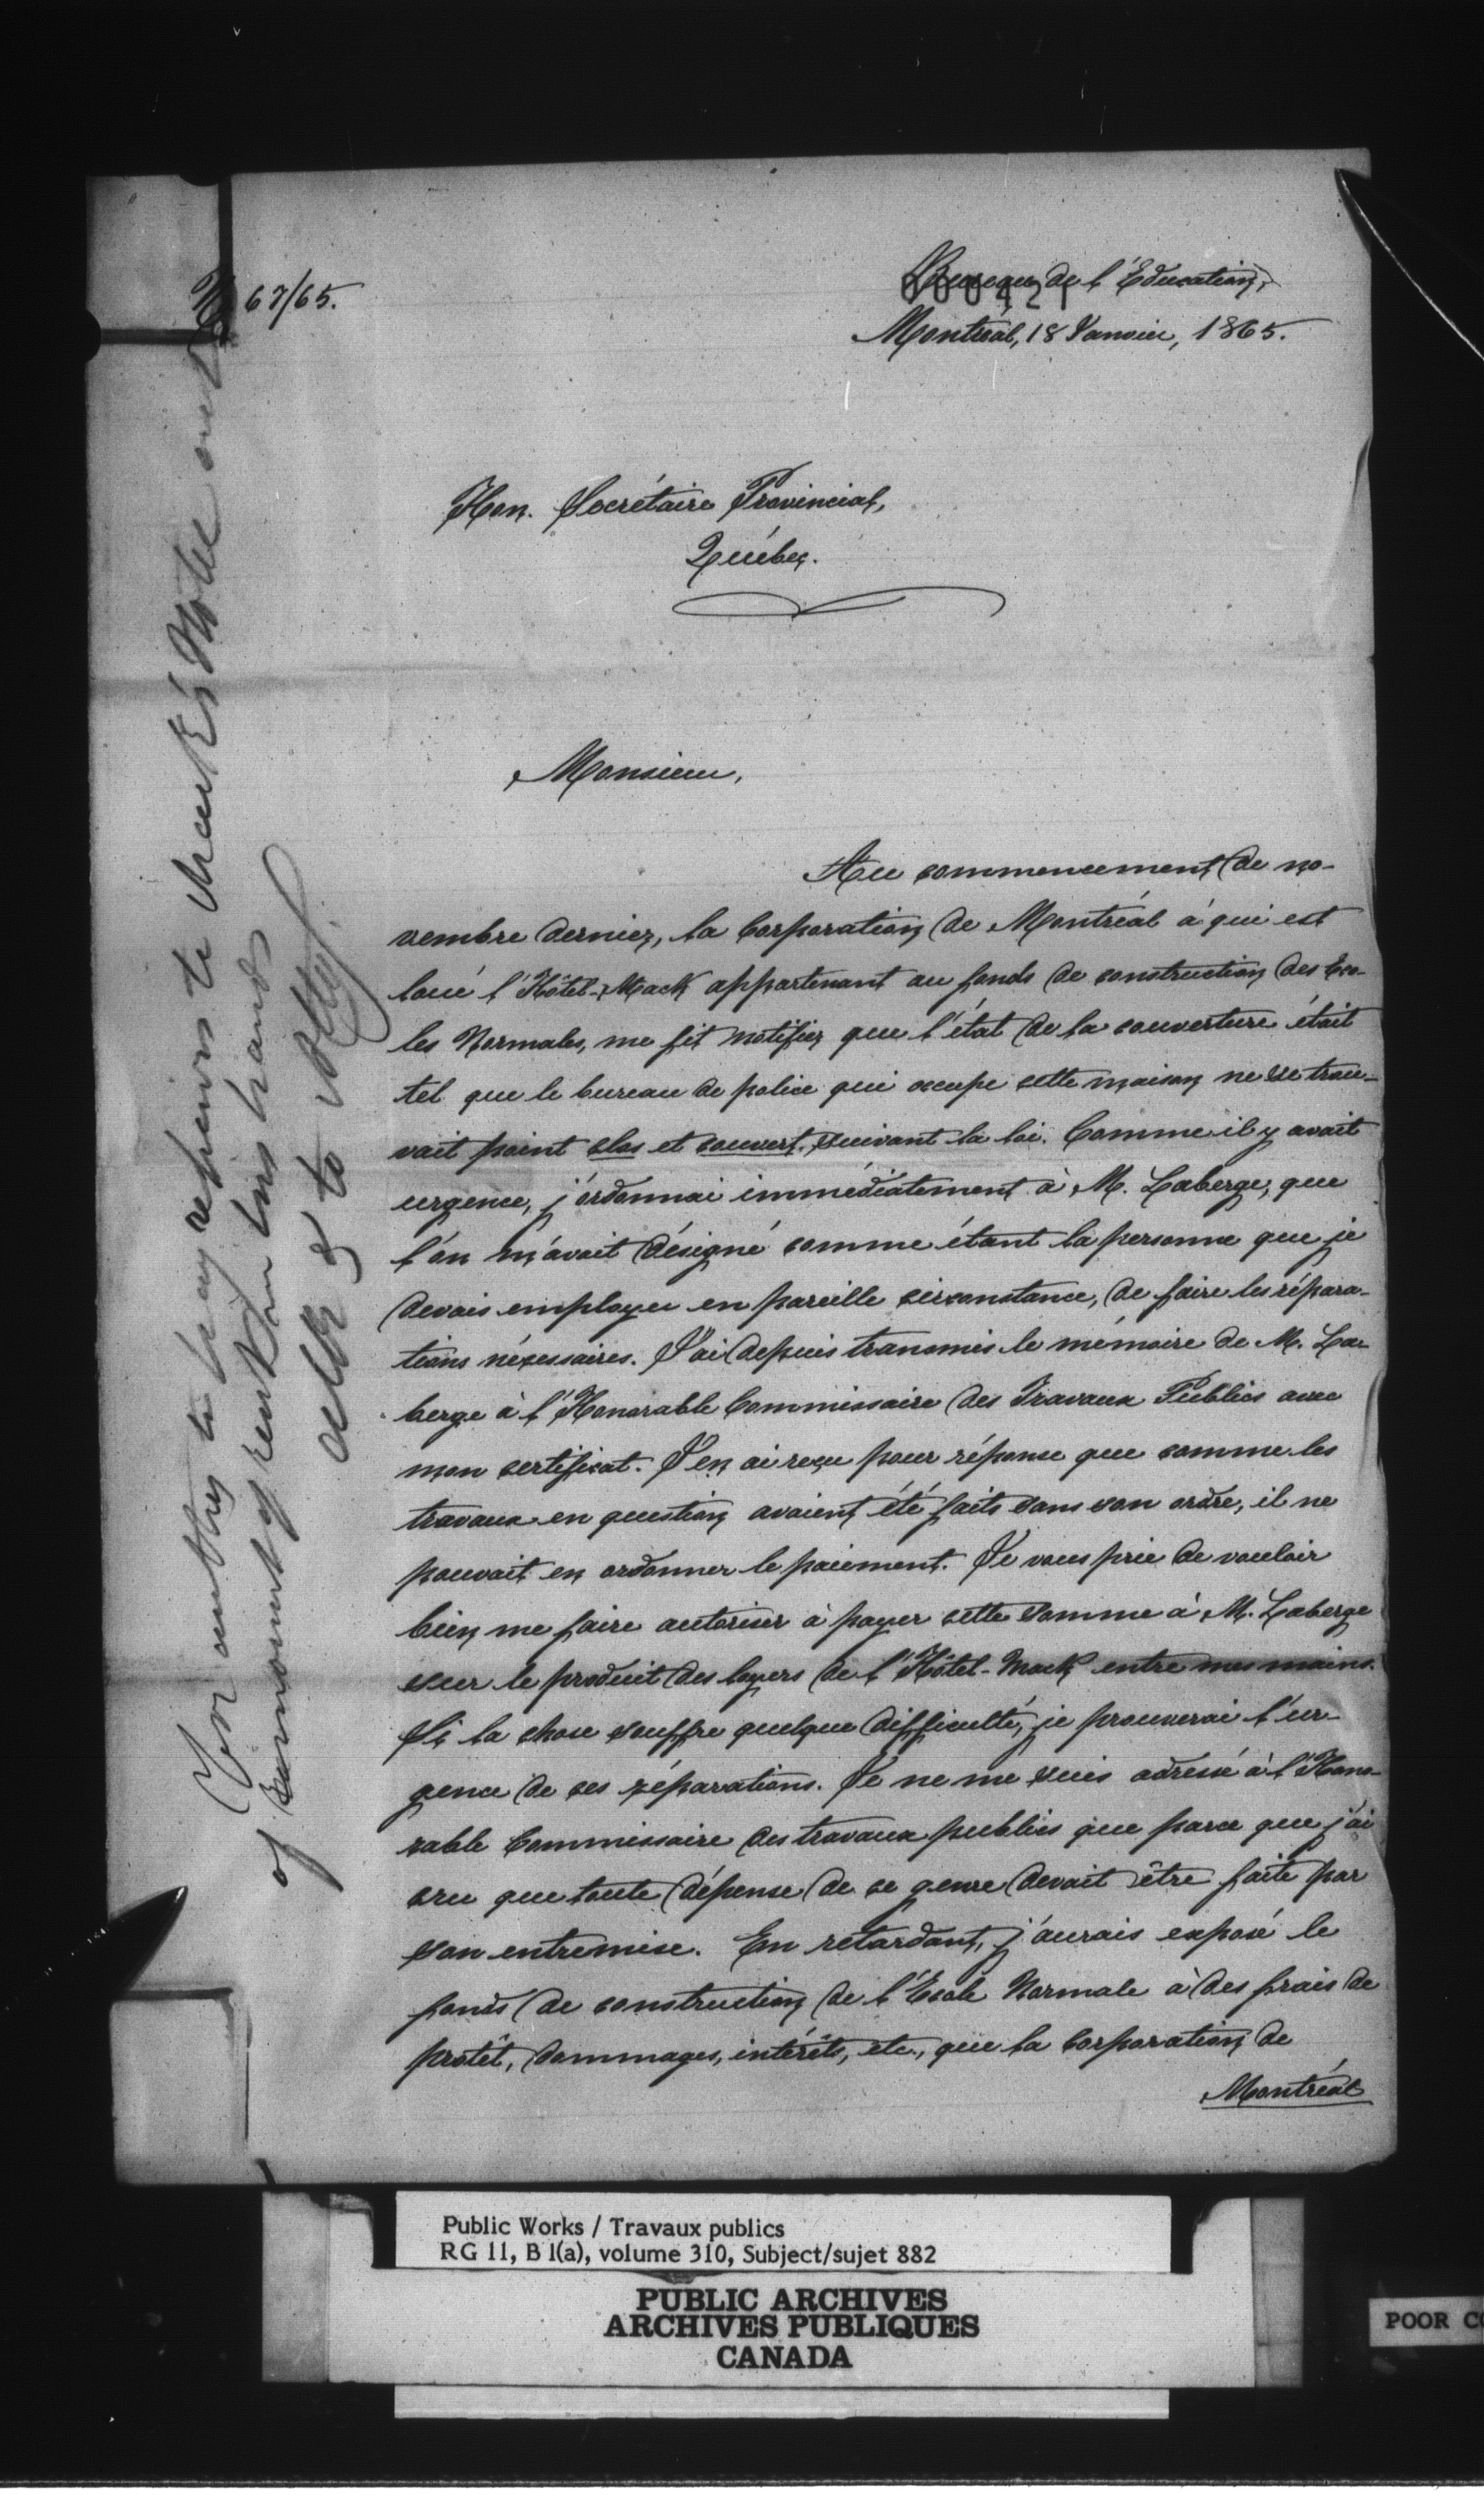 No 67/65.
Bureau de l'Éducation,
000421
Montréal, 18 Janvier, 1865.
Hon. Secrétaire Provincial,
Québec.
Monsieur,
Au commencement de no-
vembre dernier, la Corporation de Montréal à qui est
loué l'Hôtel-Mack appartenant au fonds de construction des Eco-
les Normales, me fit notifier que l'état de la couverture était
tel que le bureau de police qui occupe cette maison ne se trou-
vait point clos et couvert suivant la loi. Comme il y avait
urgence, j'ordonnai immédiatement à M. Laberge, que
l'on m'avait désigné comme étant la personne que je
devais employer en pareille circonstance, de faire les répara-
tions nécessaires. J'ai depuis transmis le mémoire de M. La-
berge à l'Honorable Commissaire des Travaux Publics avec
mon certificat. J'en ai reçu pour réponse que comme les
travaux en question avaient été faits sans son ordre, il ne
pouvait en ordonner le paiement. Je vous prie de vouloir
bien me faire autoriser à payer cette somme à M. Laberge
sur le produit des loyers de l'Hôtel-Mack entre mes mains.
Si la chose souffre quelque difficulté, je prouverai l'ur-
gence de ces réparations. Je ne me suis adressé à l'Hono-
rable Commissaire des travaux publics que parce que j'ai
cru que toute dépense de ce genre devait être faite par
son entremise. En retardant, j'aurais exposé le
fonds de construction de l'École Normale à des frais de
protêt, dommages, intérêts, etc., que la corporation de
Montréal
For authy to pay repairs to Mack's Hotel out
of amount of rent in his hands
Public Works / Travaux publics
RG 11, B 1(a), volume 310, Subject/sujet 882
PUBLIC ARCHIVES
ARCHIVES PUBLIQUES
CANADA
POOR CO